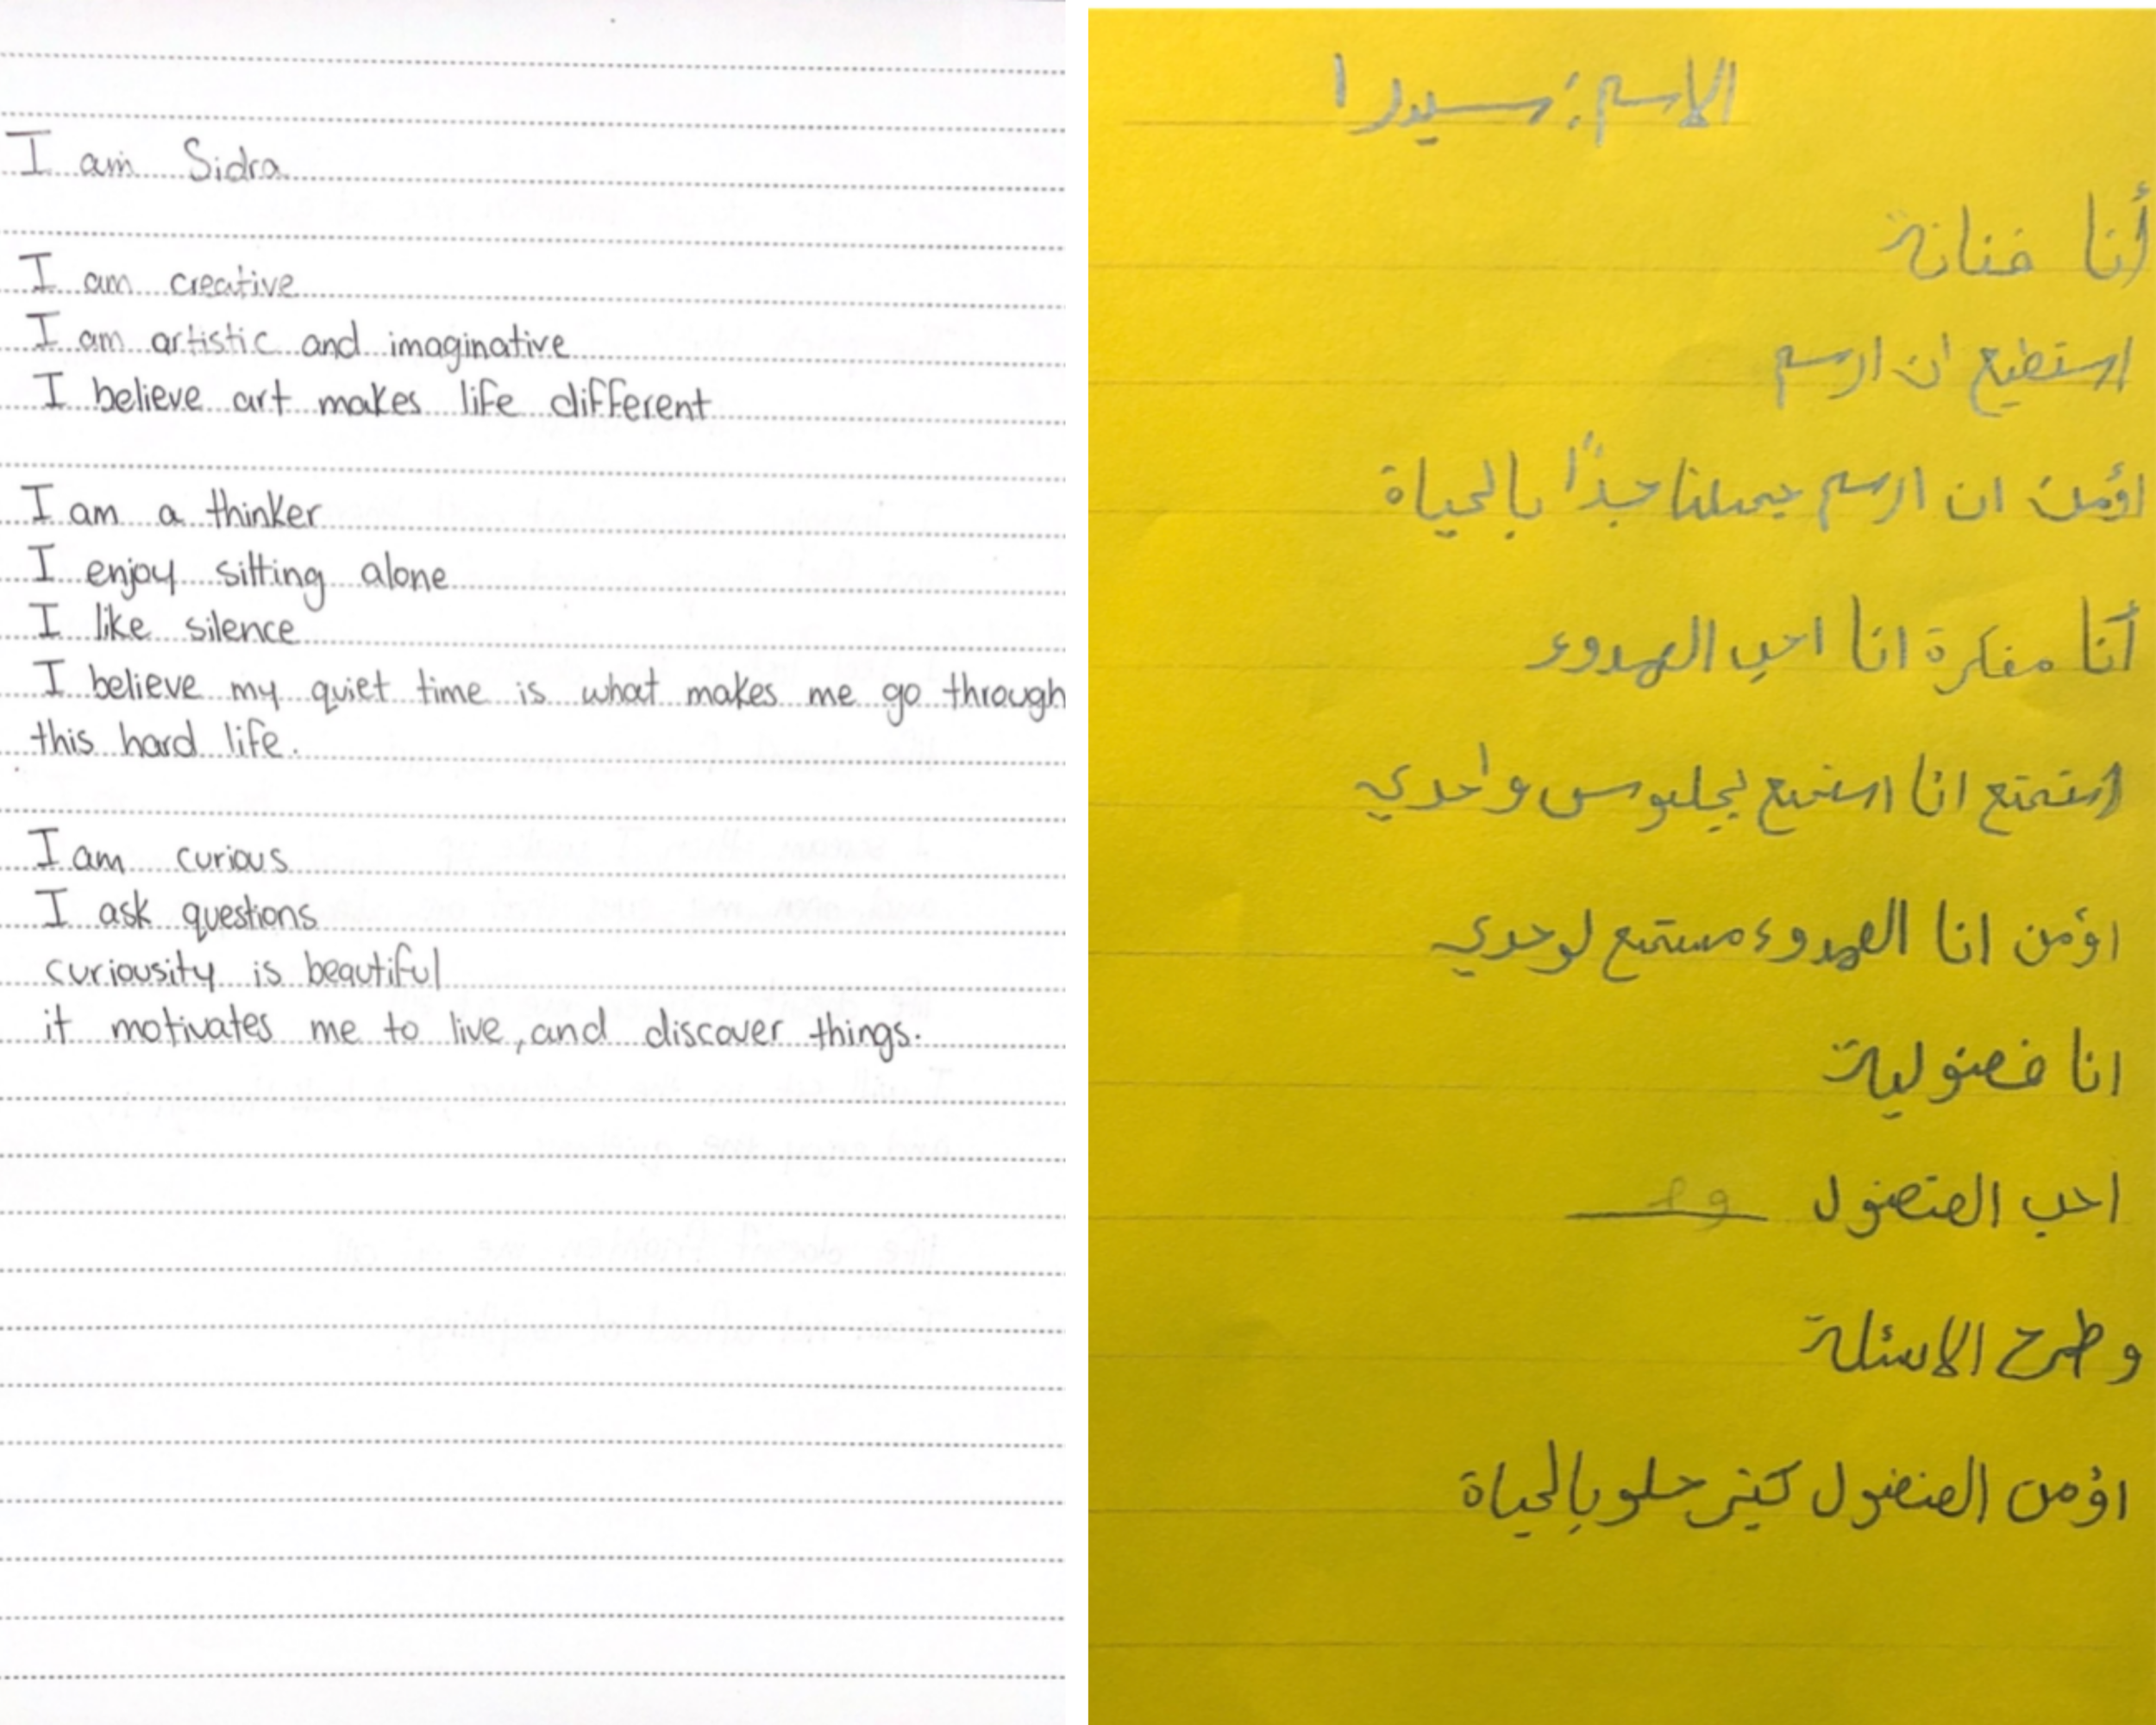 I am Sidra
I am creative
I am artistic and imaginative
I believe art makes life different
I am a thinker
I enjoy sitting alone
I like silence
I believe my quiet time is what makes me go through
this hard life.
I am curious
I ask questions
curiousity is beautiful
it motivates me to live, and discover things.
الاسم: سيدرا
أنا فنانة
استطيع ان ارسم
اؤمن ان ارسم جداً بالحياة
أنا مفكرة انا احب الهدوء
استمتع انا استمتع بجلبوس واحدي
اؤمن انا الهدوء مستمتع لوحدي
انا فضولية
احب الفضول
وطرح الاسئلة
اؤمن الفضول كثير حلو بالحياة